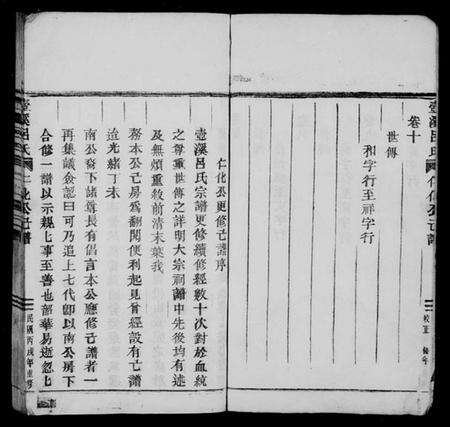 壺溪呂氏
仁化公己譜
卷十
世傳
和字行至祥字行
仁化公更修己譜序
壺溪呂氏宗譜更修續修經數十次對於血統
之尊重世傳之詳明大宗祠譜中先後均有述
及無煩重敘前清末葉我
務本公己房為翻閱便利起見曾經設有己譜
迨光緒丁未
南公裔下諸尊長有倡言本公廳修己譜者一
再集議僉認曰可乃追上七代卽以南公房下
合修一譜以示親上事至善也韶華易逝忽上
壺溪呂氏
仁化公己譜
民國丙戌年重修